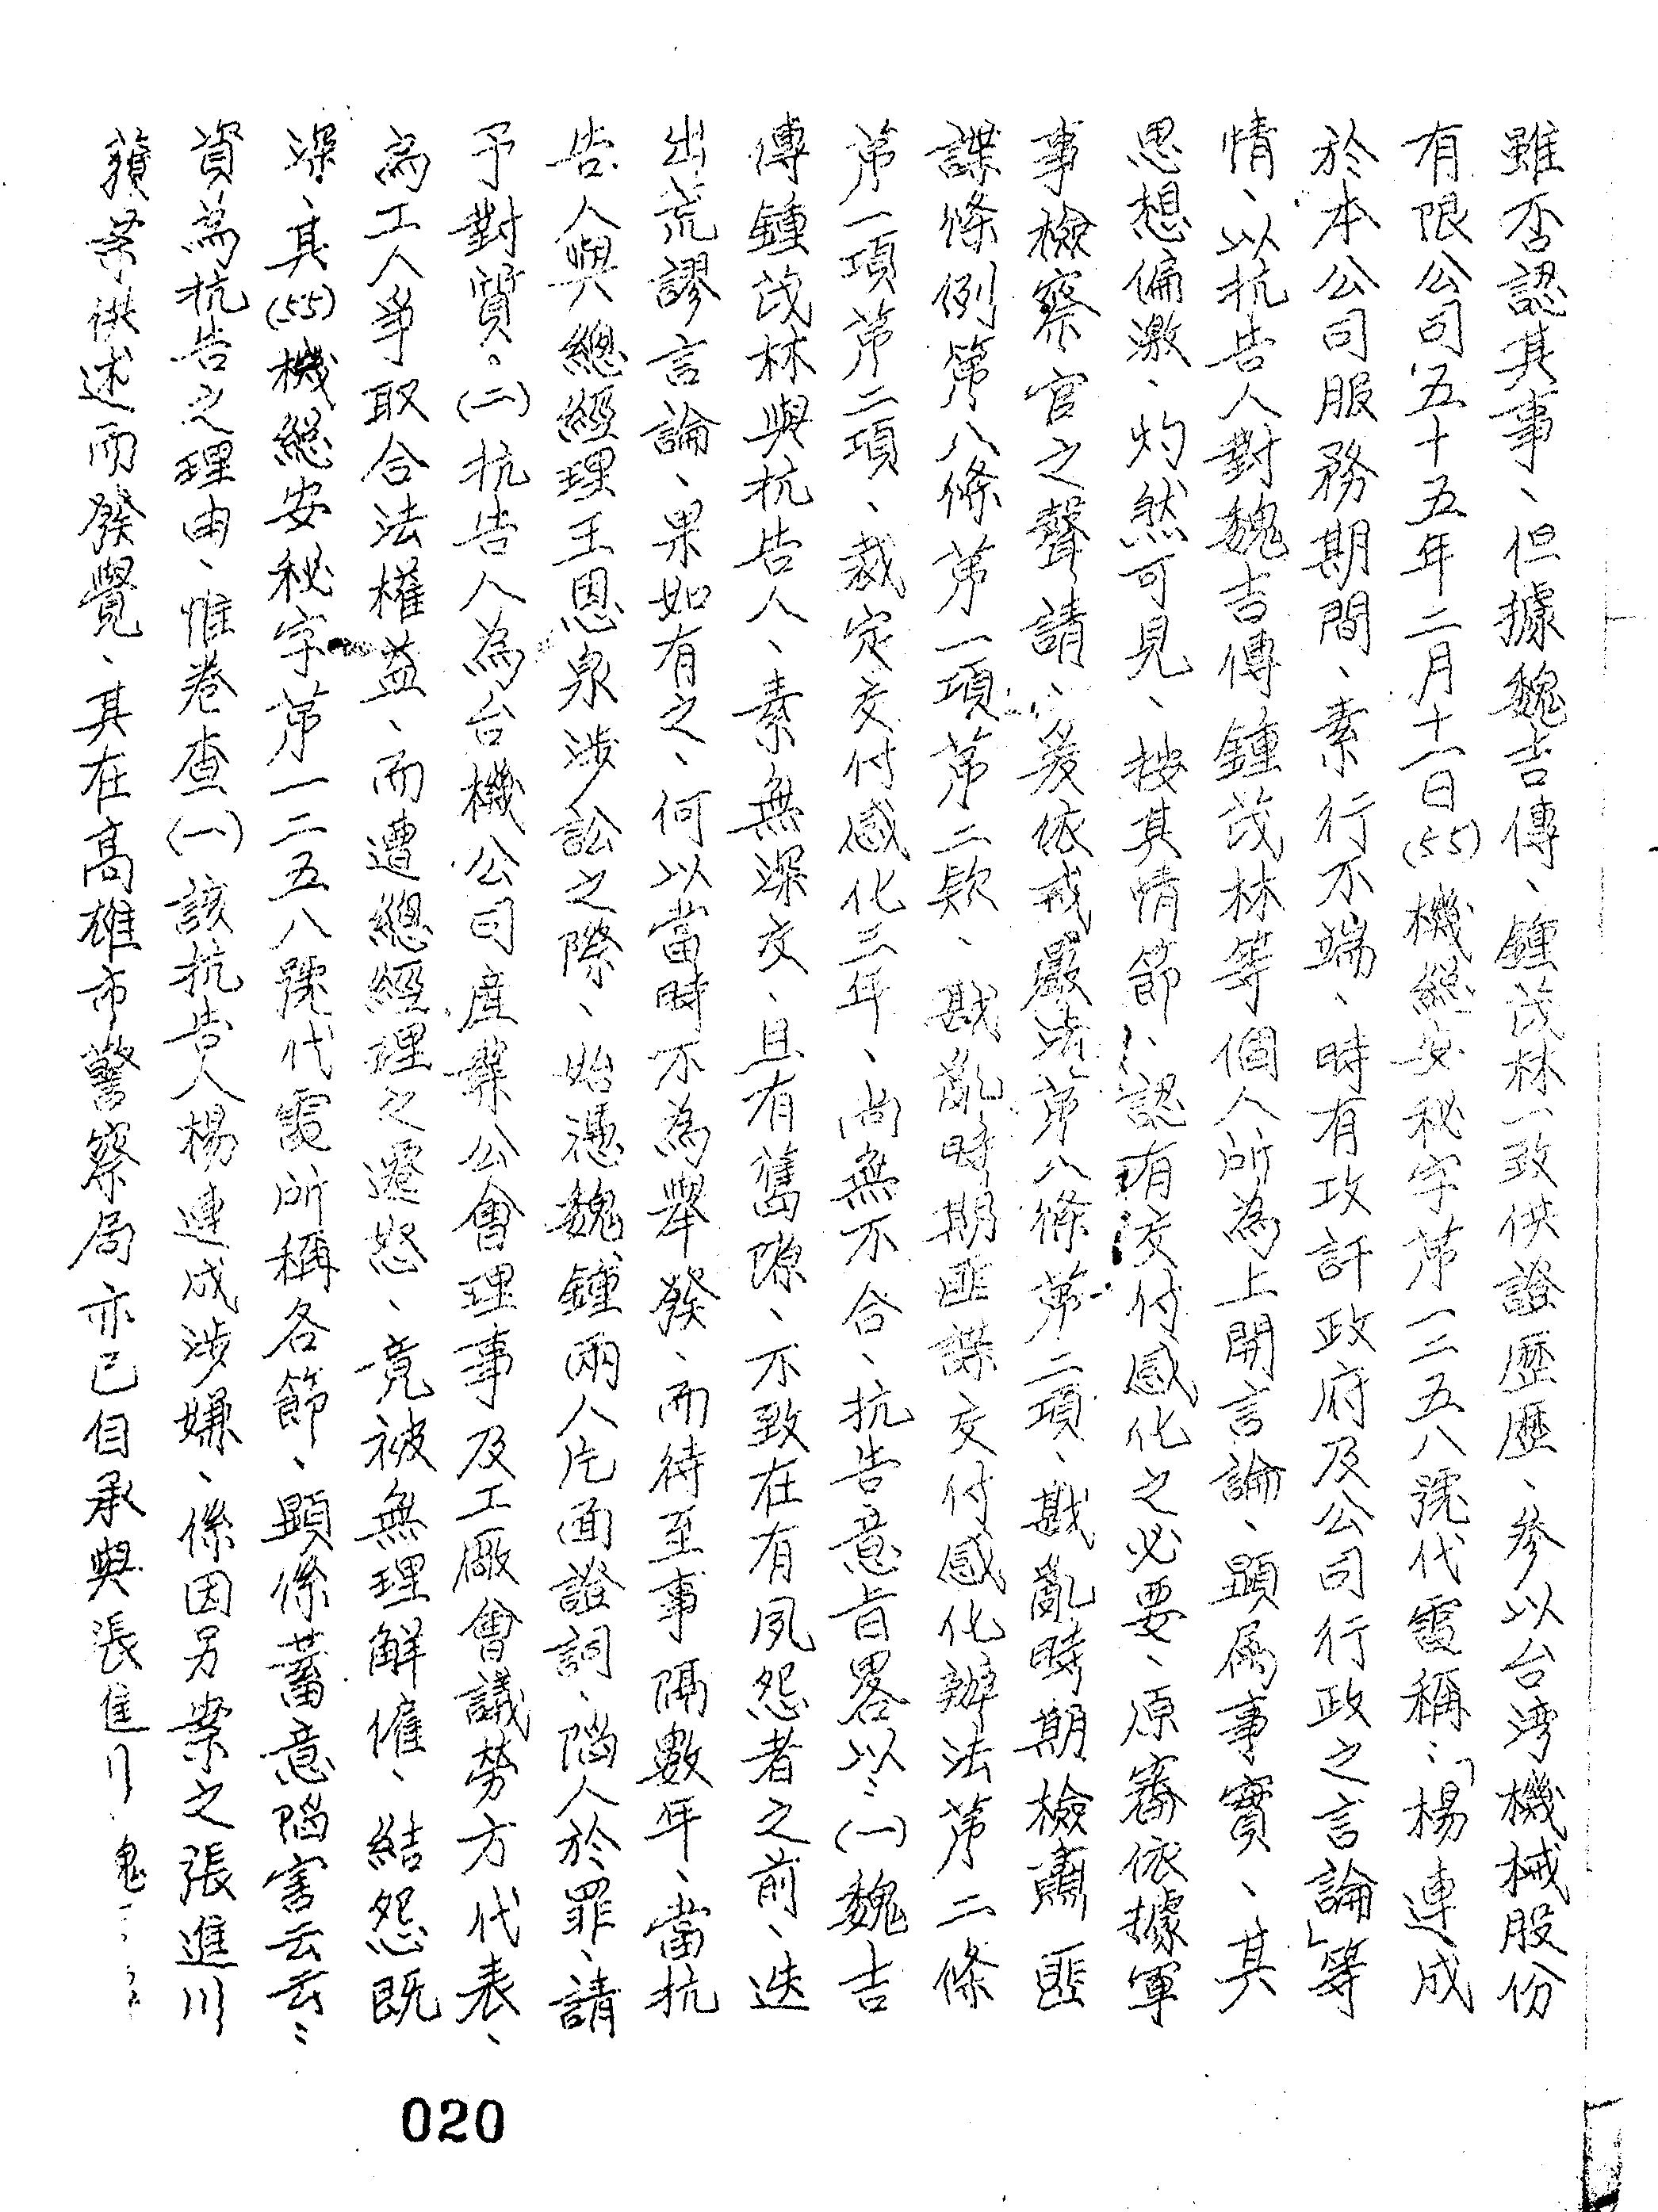 雖否認其事、但據魏吉傳、鍾茂林一致供證歷歷、參以台湾機械股份
有限公司五十五年二月十一日(55)機總安秘字第一二五八號代電稱：「楊連成
於本公司服務期間、素行不端、時有攻訐政府及公司行政之言論」等
情、以抗告人對魏吉傳鍾茂林等個人所為上開言論、顯属事實、其
思想偏激、灼然可見、按其情節、認有交付感化之必要、原審依據軍
事檢察官之聲請、爰依戒嚴法第八條第二項、戡亂時期檢肅匪
諜條例第八條第一項第二款、戡亂時期匪諜交付感化辦法第二條
第一項第二項、裁定交付感化三年、尚無不合、抗告意旨畧以：(一)魏吉
傳鍾茂林與抗告人、素無深交、且有舊隙、不致在有夙怨者之前、迭
出荒謬言論、果如有之、何以當時不為舉發、而待至事隔數年、當抗
告人與總經理王恩泉涉訟之際、始憑魏鍾兩人片面證詞、陷人於罪、請
予對質。(二)抗告人為台機公司產業公會理事及工廠會議勞方代表、
為工人爭取合法權益、而遭總經理之遷怒、竟被無理解僱、結怨既
深、其(55)機總安秘字第一二五八號代電所稱各節、顯係蓄意陷害云云：
資為抗告之理由、惟卷查(一)該抗告人楊連成涉嫌、係因另案之張進川
蘋案供述而發覺、其在高雄市警察局亦已自承與張進川
020